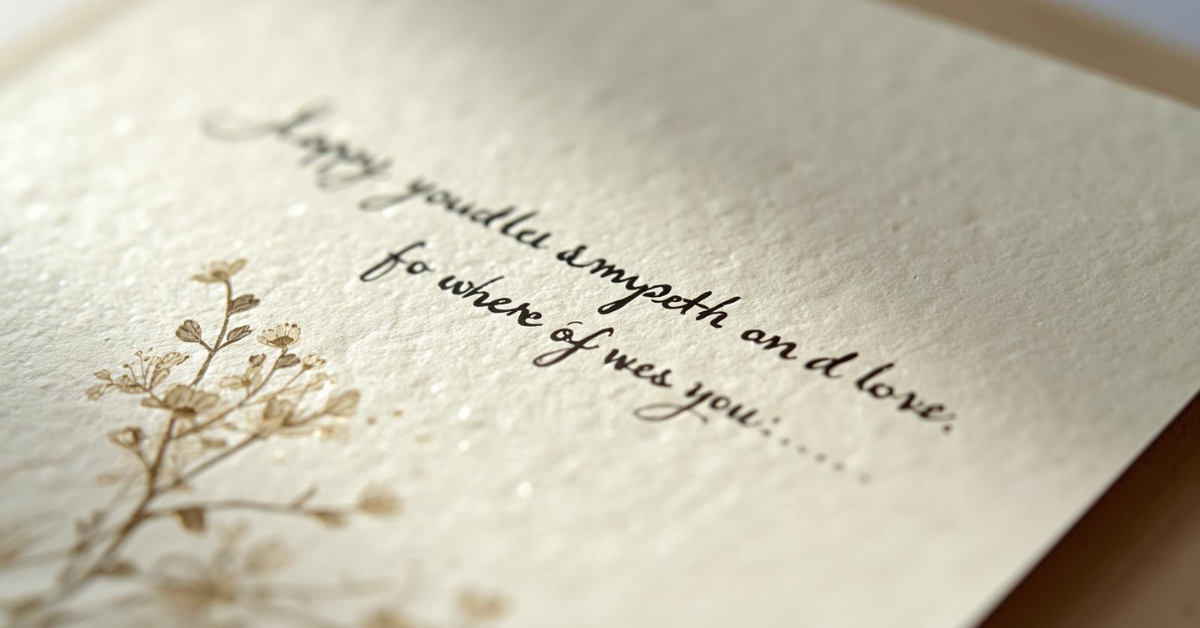 Happy youdler ampeth an d love.
fo where of wes you:......